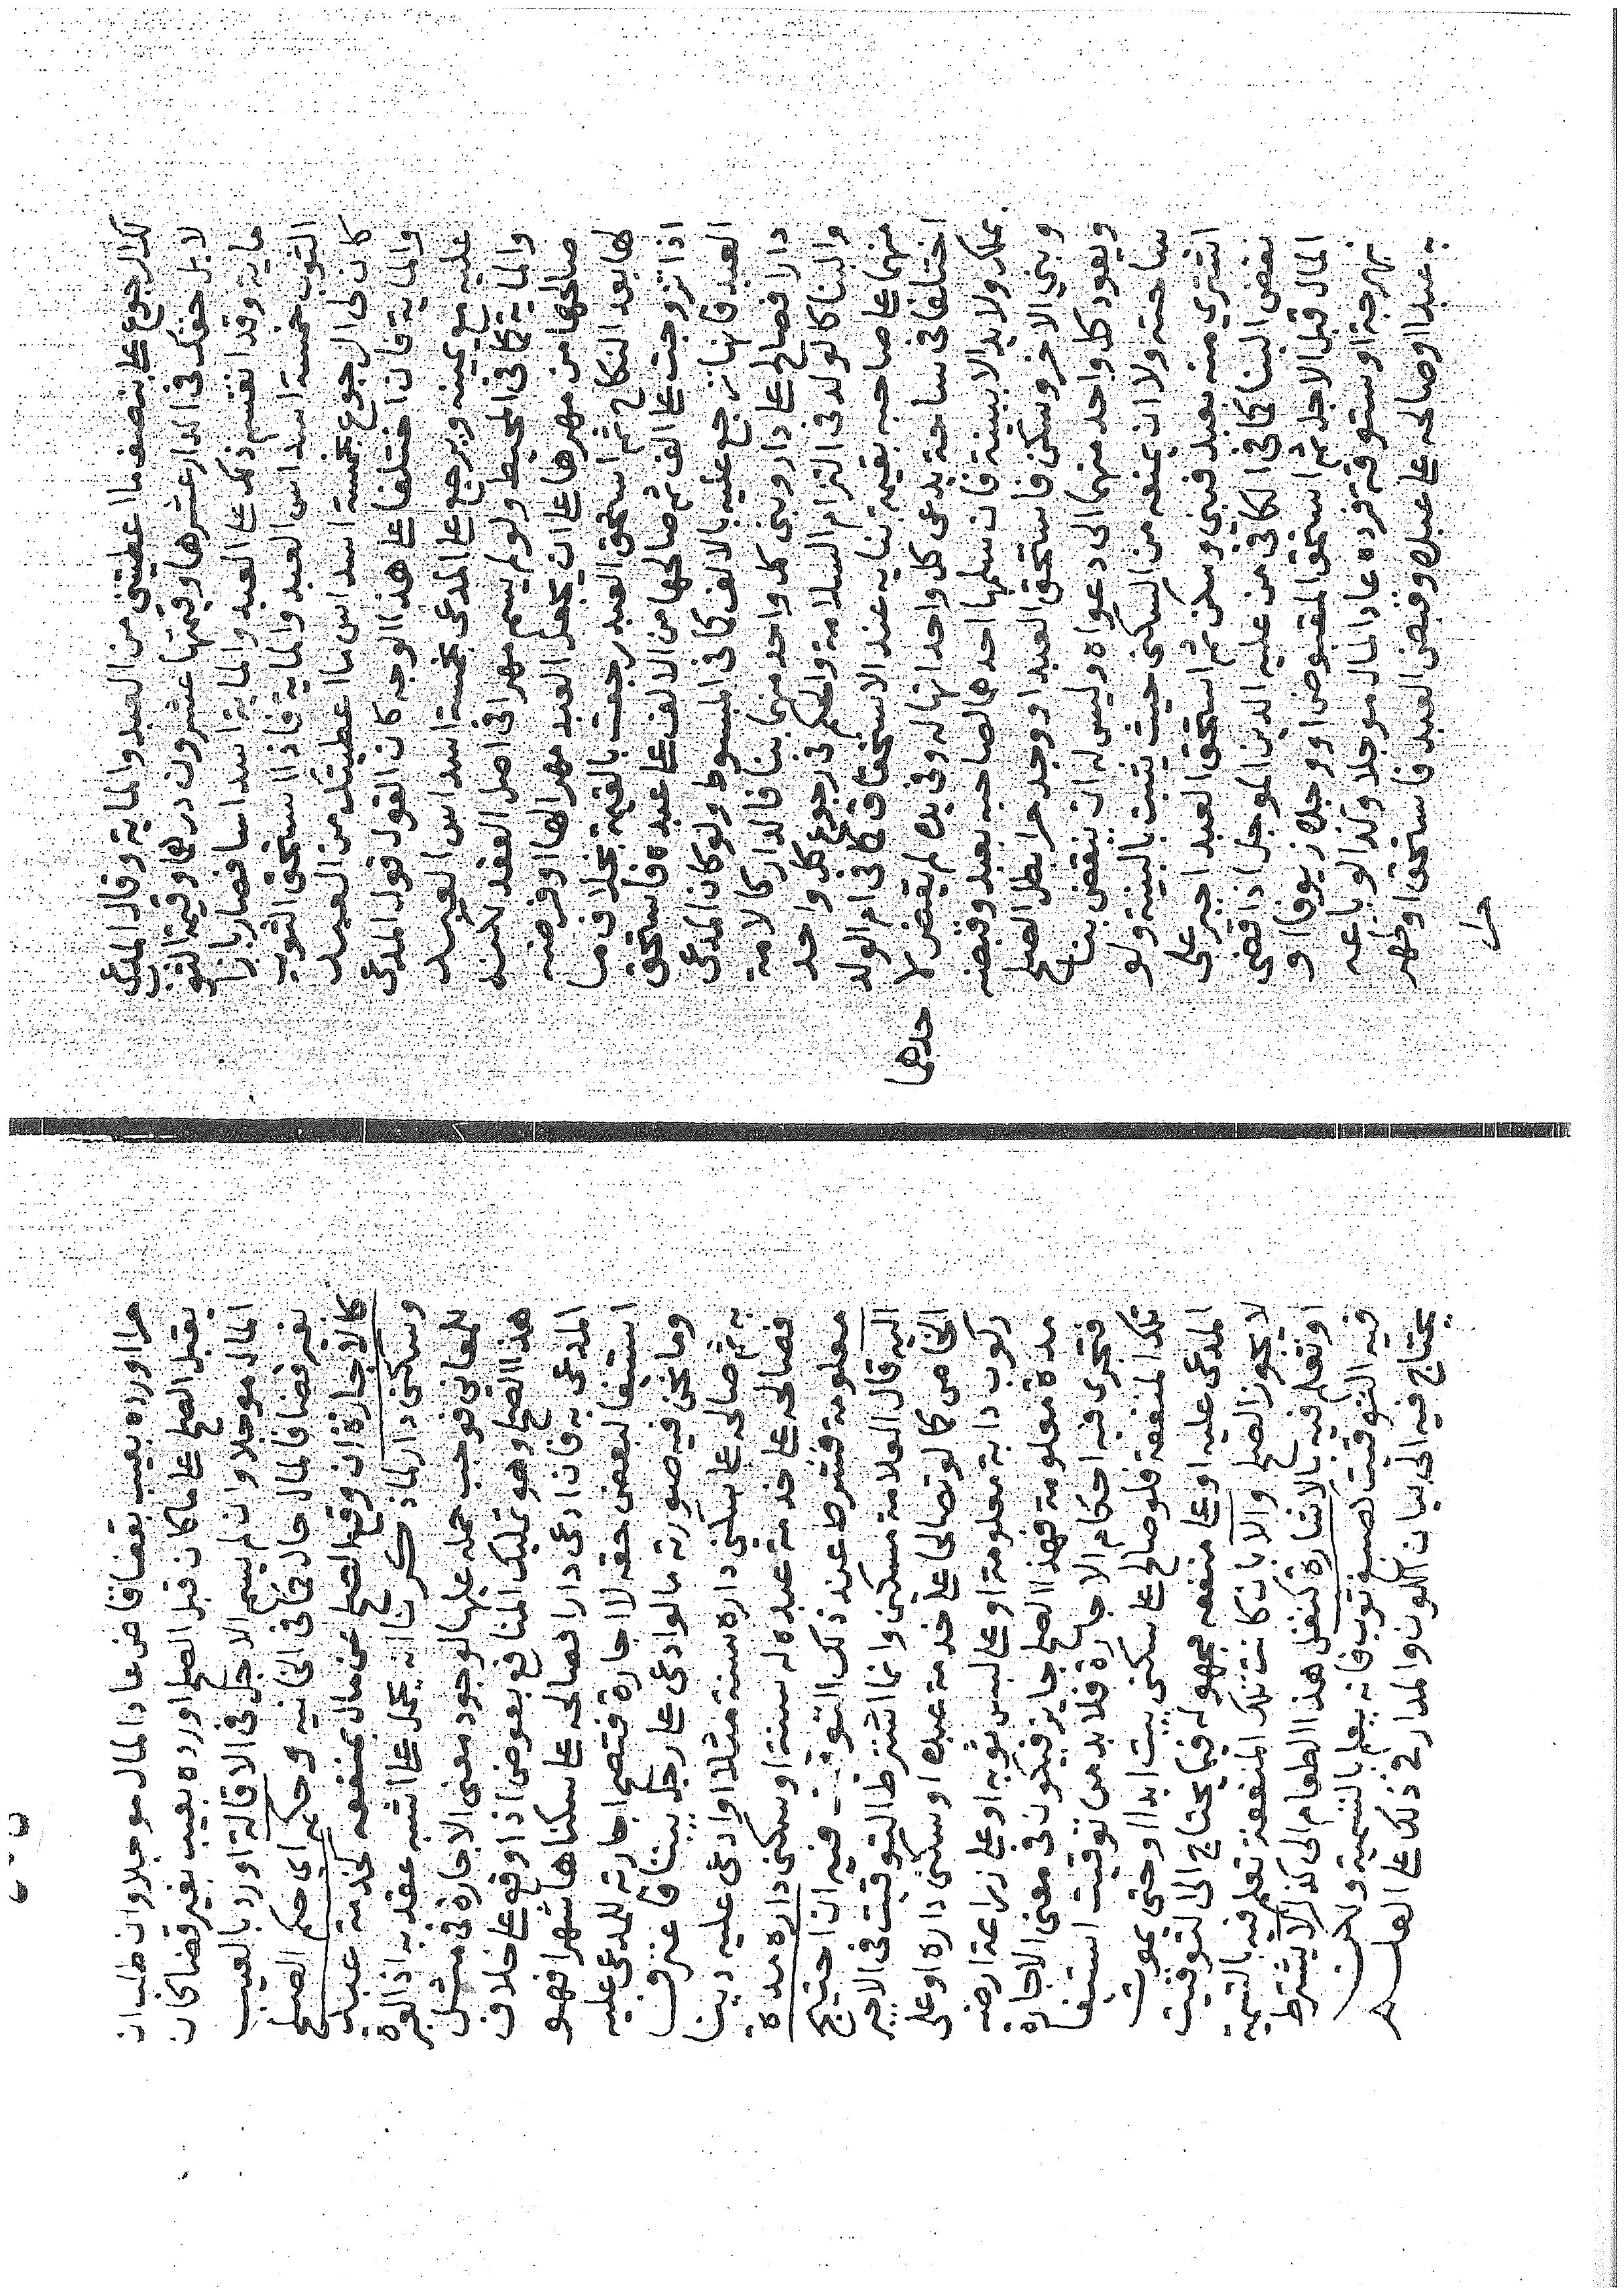 لك الرجوع على بنصف ما اعطيتني من العبد والماية وقال المدعى
لا بل حقك في الدار عشرها وقيمتها عشرون درهما وقيمة الثو
ماية وقد انقسم ذلك على العبد والماية اسداسا فصار بازا
الثوب خمسة اسداس العبد والماية فاذا استحق الثوب
كان لى الرجوع بخمسة اسداس ما اعطيتك من العبد
والماية فان اختلفا على هذا الوجه كان القول قول المدعى
عليه مع يمينه ويرجع على المدعى بخمسة اسداس العبد
والماية كما في المحيط ولو لم يسم مهرا في اصل العقد لكنه
صالحها من مهرها على ان يجعل العبد مهرا لها او فرضه
لها بعد النكاح ثم استحق العبد رجعت بالقيمة بخلاف ما
اذا تزوجت على الف ثم صالحها من الالف على عبده فاستحق
العبد فانها ترجع عليه بالالف كما في المبسوط ولو كان المدعى
دارا فصالح على دار وبنى كل واحد منهما بنا فالدار كالامة
والبنا كالولد في التزام السلامة والحكم في رجوع كل واحد
منهما على صاحبه بقيمة بنايه عند الاستحقاق كما في ام الولد
اختلفا في ساحة يدعى كل واحد انها له وفي يده لم يقض لا حدهما
بملك ولا يد الا ببينة فان سلمها احدهما لصاحبه بعبد وقبضه
وبنى الاخر وسكن فاستحق العبد او وجد حرا بطل الصلح
ويعود كل واحد منهما الى دعواه وليس له ان ينقض بنا
ساحته ولا ان يمنعه من السكنى حيث يثبت بالبينة ولو
اشترى منه بعبد فبنى وسكن ثم استحق العبد اجبر على
نقض البنا كما في الكافي من عليه الدين الموجل اذا قضى
المال قبل الاجل ثم استحق المقبوض او وجده زيوفا او
نبهرجة او ستوقة فرده عاد المال موجلا وكذا لو باعه
به عبدا او صالحه على عبده وقبض العبد فاستحق او ظهر
حرا
حرا او رده بعيب بقضا قاض عاد المال موجلا وان طلب ان
يقبل الصلح على ما كان قبل الصلح او رده بعيب بغير قضا كان
المال موجلا وان لم يسم الاجل في الاقالة او رد بالعيب
بغير قضا فالمال حال كما في الخانيه وحكمه اى حكم الصلح
كالاجارة ان وقع الصلح عن مال بمنفعه كخدمة عبد
وسكنى دار لما ذكرنا انه يحمل على اشبه عقد به اذ العبرة
للمعاني فوجب حمله عليها لوجود معنى الاجارة في مثل
هذا الصلح وهو تمليك المنافع بعوض اذا وقع على خلاف
المدعى به فان ادعى دارا فصالحه على سكناها شهرا فهو
استيفا لبعض حقه لا اجارة فتصح اجارته للمدعى عليه
وما نحن فيه صورته ما لو ادعى على رجل بيتا فاعترف
به ثم صالحه على سكنى داره سنة مثلا او ادعى عليه دينا
فصالحه على خدمة عبده له سنة او سكنى داره مدة
معلومة فشرط عند ذلك التوقيت فيه ان احتيج
اليه قال العلامة مسكين وانما اشترط التوقيت في الاجير
الخاص كما لو تصالحا على خدمة عبده او سكنى داره او على
ركوب دابة معلومة او على لبس ثوبه او على زراعة ارضه
مدة معلومة فهذا الصلح جايز فيكون في معنى الاجارة
فتجرى فيه احكام الاجارة فلا بد من توقيت استيفا
تلك المنفعة فلو صالح على سكنى بيت ابدا او حتى يموت
المدعى عليه او على منفعه مجهوله فيما يحتاج الى التوقيت
لا يجوز الصلح والا بان كانت تلك المنفعة تعلم فيه بالتسمية
او تعلم فيه بالاشارة كنقل هذا الطعام الى كذا لا يشترط
فيه التوقيت كصبغ ثوب فانه يعلم بالتسمية ولكن
يحتاج فيه الى بيان اللون والمدار في ذلك على العلم